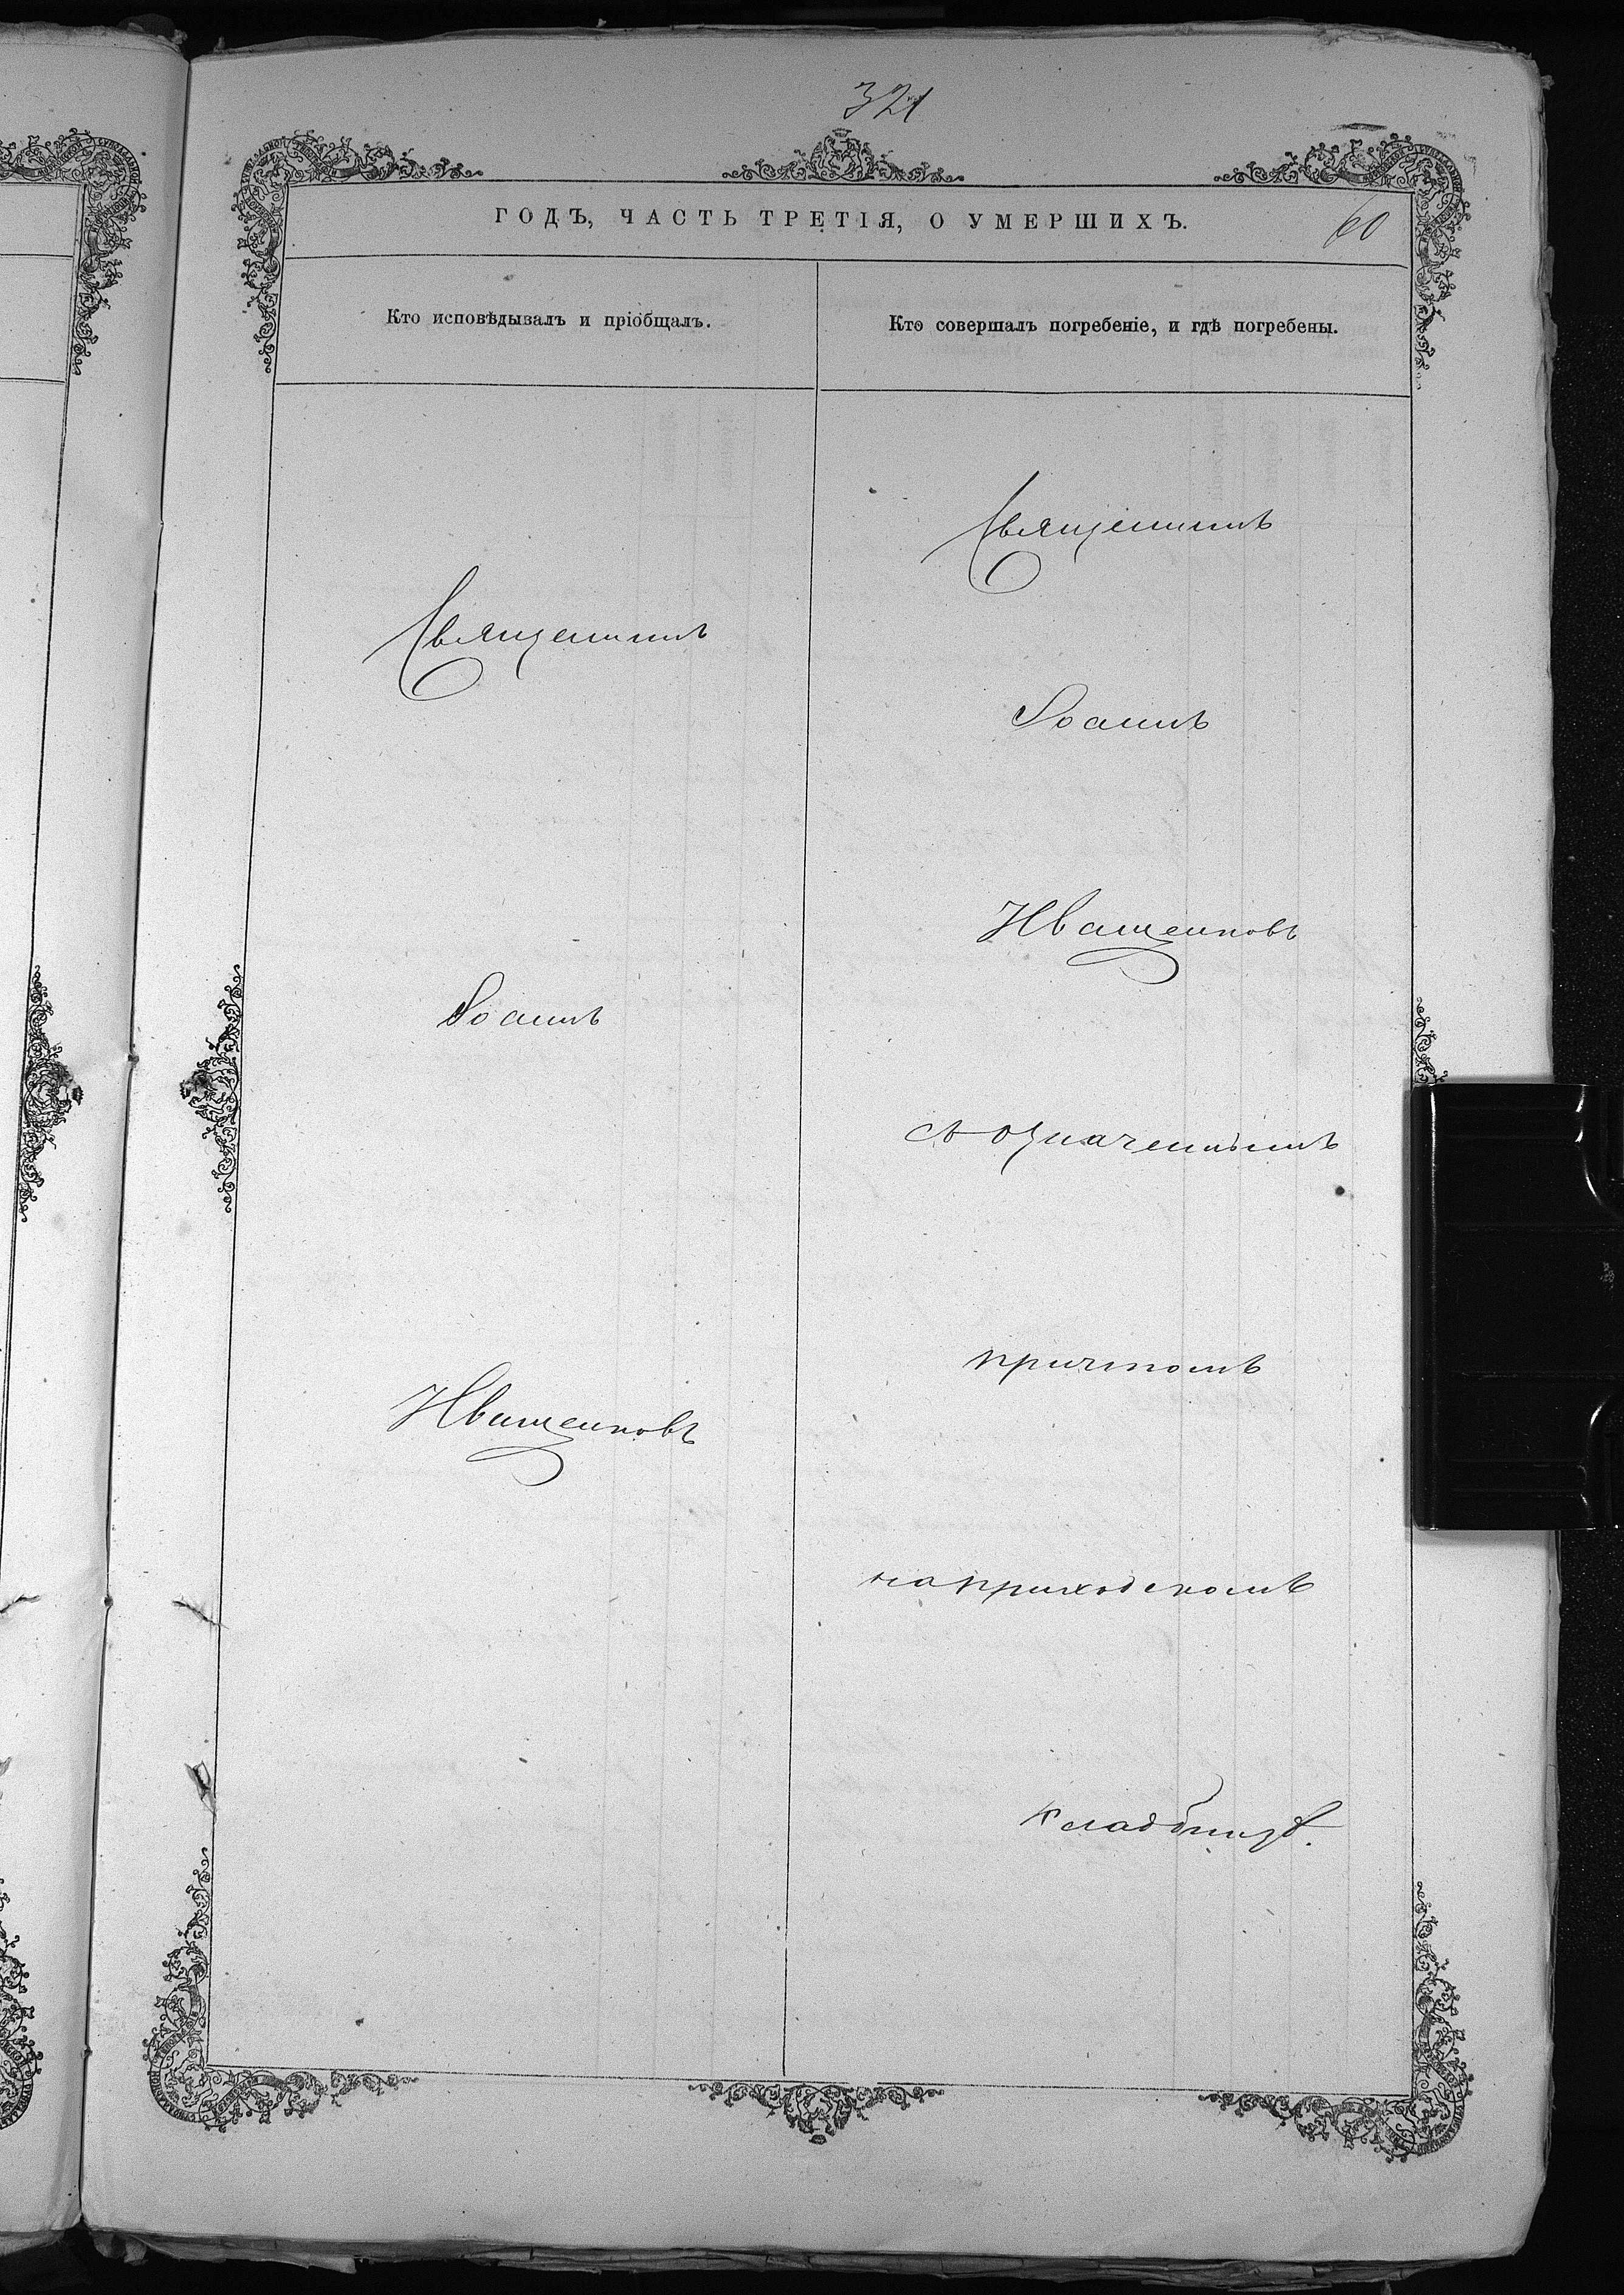 321
ГОДЪ, ЧАСТЬ ТРЕТІЯ, О УМЕРШИХЪ.
60
Кто исповѣдывалъ и пріобщалъ.
Священникъ
Іоаннъ
Иващенковъ
Кто совершалъ погребеніе, и гдѣ погребены.
Священникъ
Іоаннъ
Иващенковъ
съ означеннымъ
причтомъ
на приходскомъ
кладбищѣ.